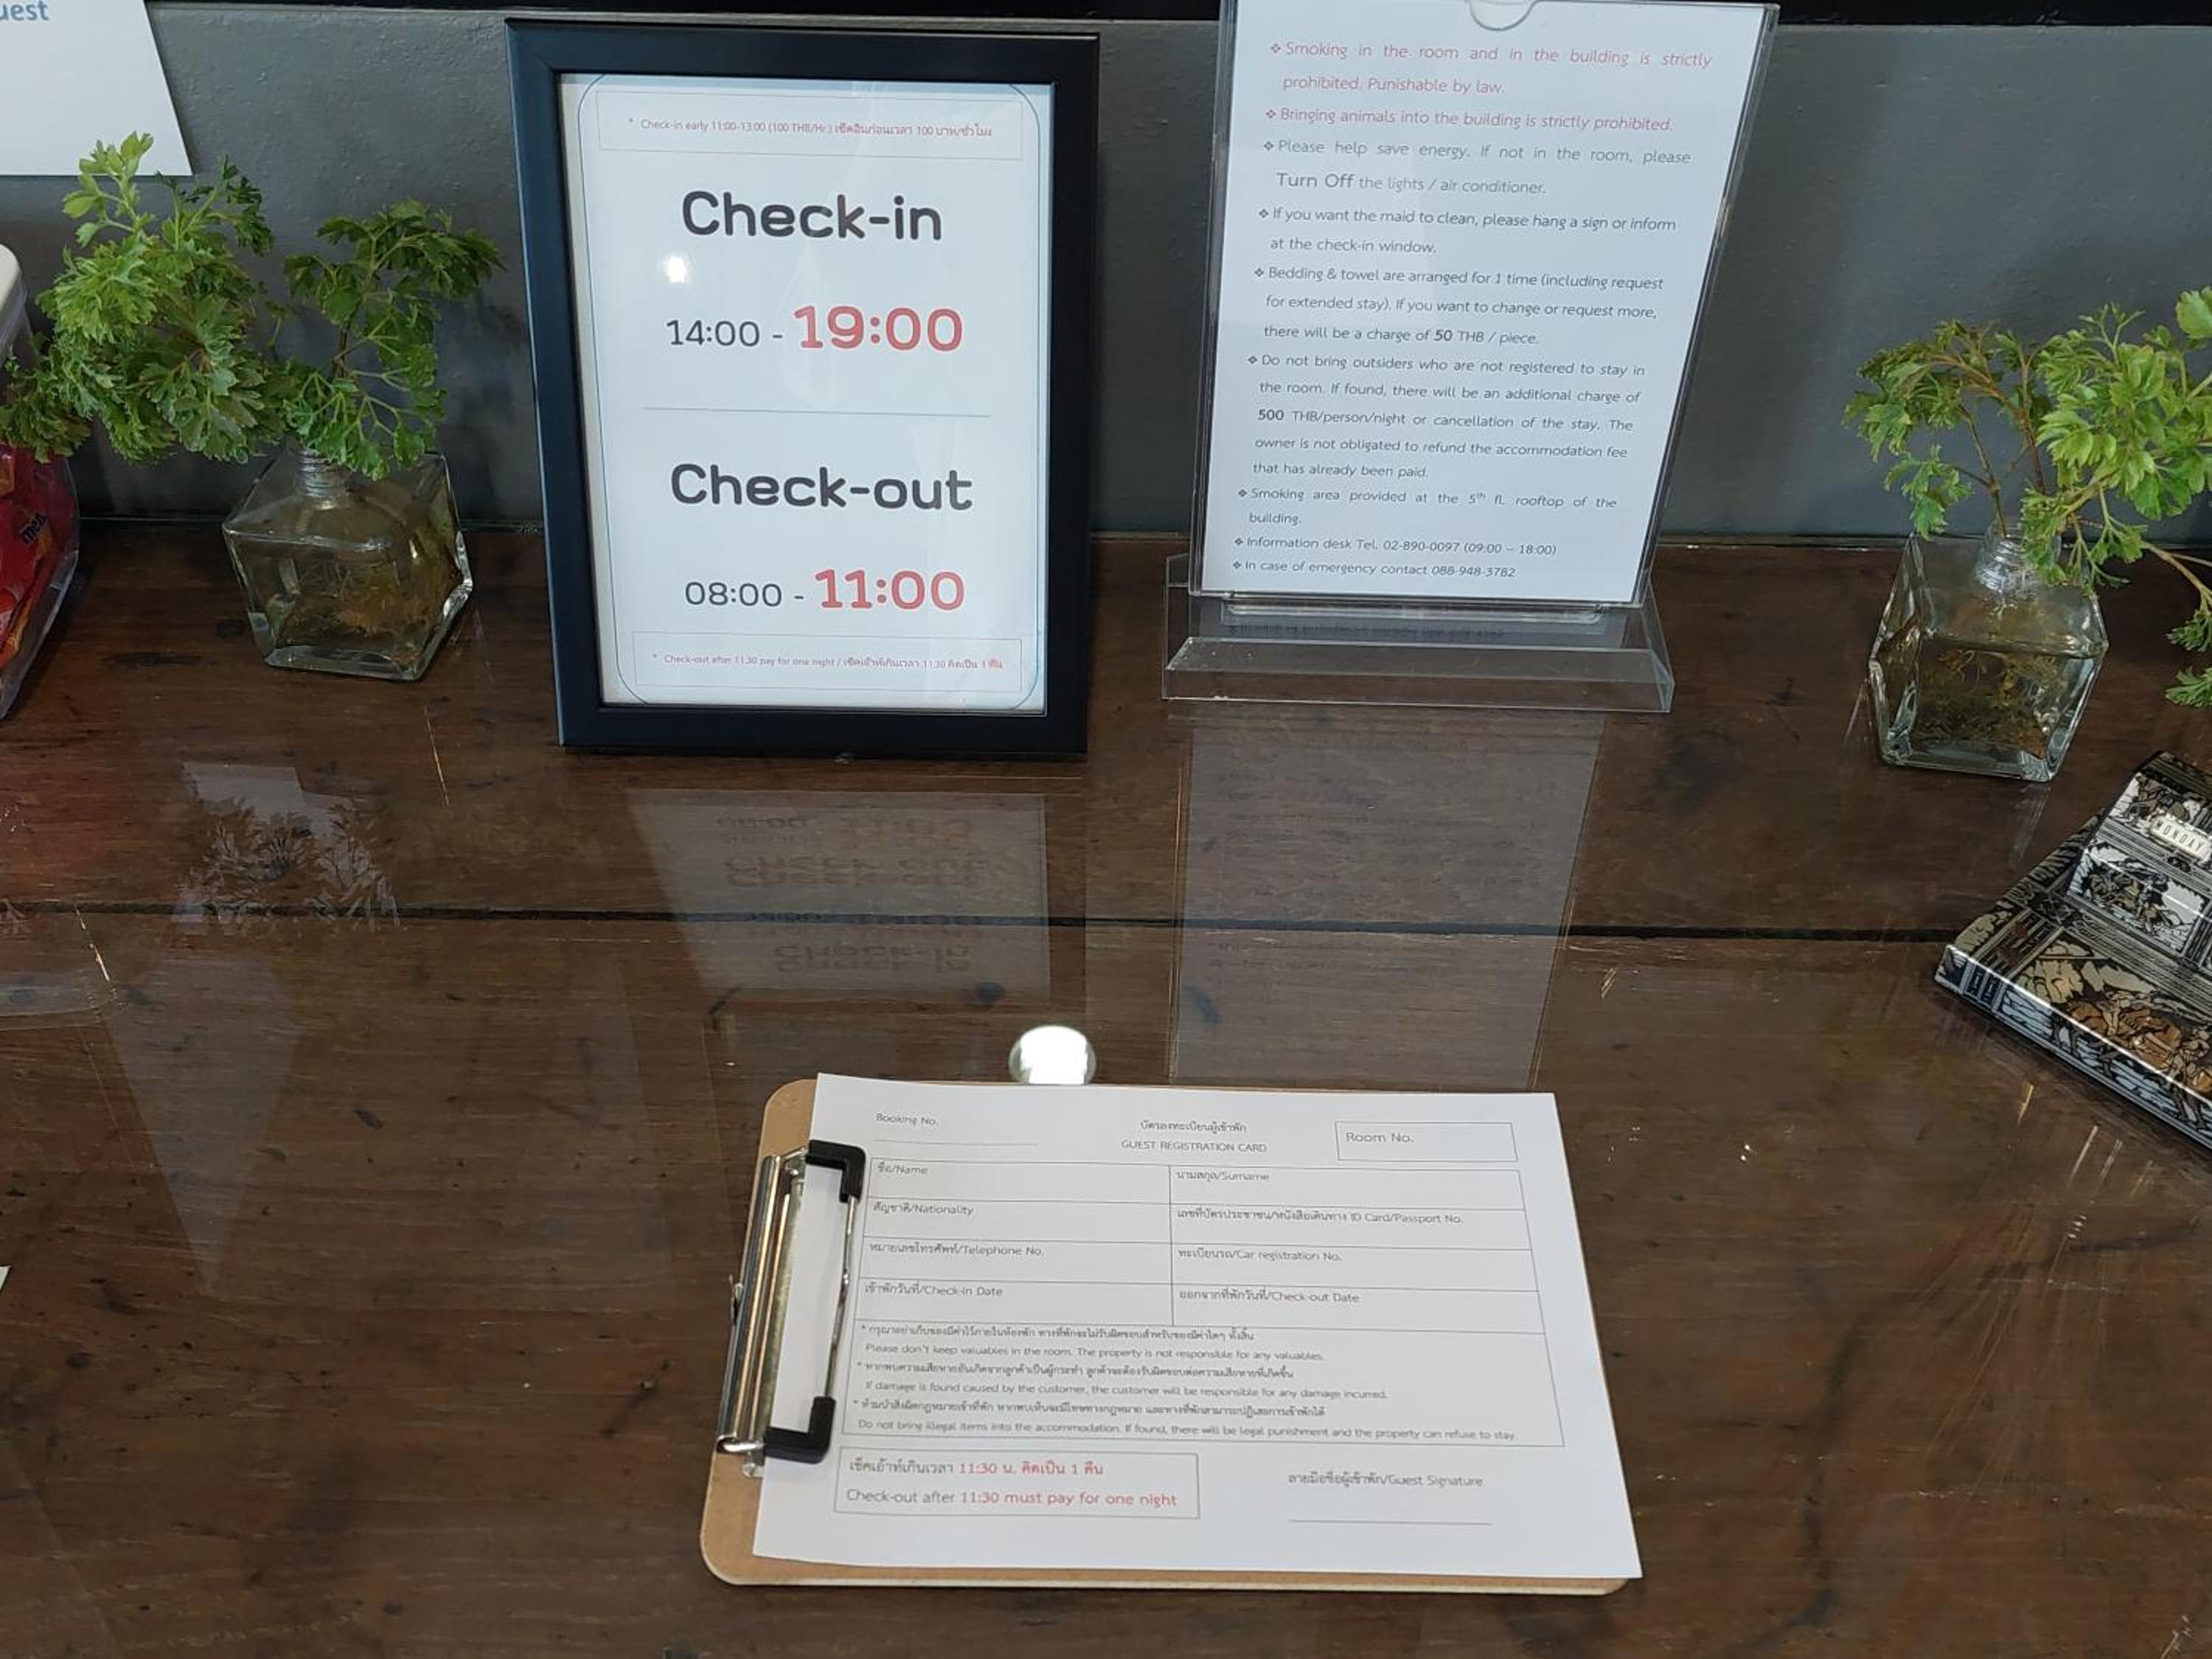 uest
* Check-in early 11:00-13:00 (100 THB/Hr.) เช็คอินก่อนเวลา 100 บาท/ชั่วโมง
Check-in
14:00 - 19:00
Check-out
08:00 - 11:00
* Check-out after 11:30 pay for one night / เช็คเอ้าท์เกินเวลา 11:30 คิดเป็น 1 คืน
❖ Smoking in the room and in the building is strictly
prohibited. Punishable by law.
❖ Bringing animals into the building is strictly prohibited.
❖ Please help save energy. If not in the room, please
Turn Off the lights / air conditioner.
❖ If you want the maid to clean, please hang a sign or inform
at the check-in window.
❖ Bedding & towel are arranged for 1 time (including request
for extended stay). If you want to change or request more,
there will be a charge of 50 THB / piece.
❖ Do not bring outsiders who are not registered to stay in
the room. If found, there will be an additional charge of
500 THB/person/night or cancellation of the stay. The
owner is not obligated to refund the accommodation fee
that has already been paid.
❖ Smoking area provided at the 5th fl. rooftop of the
building.
❖ Information desk Tel. 02-890-0097 (09:00 – 18:00)
❖ In case of emergency contact 088-948-3782
MONDAY
Booking No.
บัตรลงทะเบียนผู้เข้าพัก
GUEST REGISTRATION CARD
Room No.
ชื่อ/Name
นามสกุล/Surname
สัญชาติ/Nationality
เลขที่บัตรประชาชน/หนังสือเดินทาง ID Card/Passport No.
หมายเลขโทรศัพท์/Telephone No.
ทะเบียนรถ/Car registration No.
เข้าพักวันที่/Check-in Date
ออกจากที่พักวันที่/Check-out Date
* กรุณาอย่าเก็บของมีค่าไว้ภายในห้องพัก ทางที่พักจะไม่รับผิดชอบสำหรับของมีค่าใดๆ ทั้งสิ้น
Please don't keep valuables in the room. The property is not responsible for any valuables.
* หากพบความเสียหายอันเกิดจากลูกค้าเป็นผู้กระทำ ลูกค้าจะต้องรับผิดชอบต่อความเสียหายที่เกิดขึ้น
If damage is found caused by the customer, the customer will be responsible for any damage incurred.
* ห้ามนำสิ่งผิดกฎหมายเข้าที่พัก หากพบเห็นจะมีโทษทางกฎหมาย และทางที่พักสามารถปฏิเสธการเข้าพักได้
Do not bring illegal items into the accommodation. If found, there will be legal punishment and the property can refuse to stay.
เช็คเอ้าท์เกินเวลา 11:30 น. คิดเป็น 1 คืน
Check-out after 11:30 must pay for one night
ลายมือชื่อผู้เข้าพัก/Guest Signature